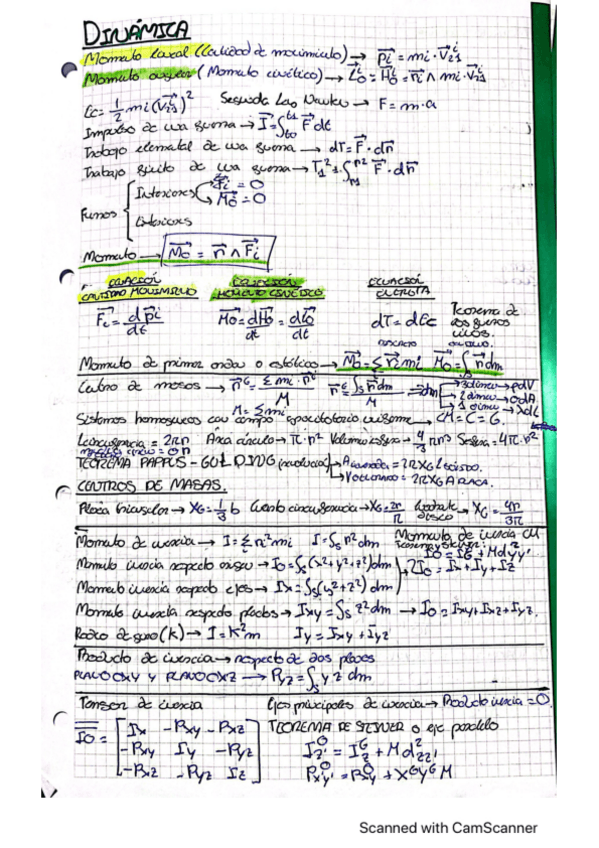 DINÁMICA
Momento lineal (Cantidad de movimiento) → p⃗i = mi · V⃗21^i
Momento angular (Momento cinético) → L⃗o^i = H⃗o^i = r⃗i ∧ mi · V⃗21^i
Ec = 1/2 mi (V⃗21^i)² Segunda Ley Newton → F = m·a
Impulso de una fuerza → I⃗ = ∫t0^t1 F⃗ dt
Trabajo elemental de una fuerza → dT = F⃗ · dr⃗
Trabajo finito de una fuerza → T1² = ∫r1^r2 F⃗ · dr⃗
Fuerzas { Interiores F⃗i = 0
M⃗o = 0
Exteriores
Momento → M⃗o = r⃗ ∧ F⃗i
ECUACIÓN CANTIDAD MOVIMIENTO
ECUACIÓN MOMENTO CINÉTICO
ECUACIÓN ENERGÍA
F⃗i = dp⃗i/dt M⃗o = dH⃗o/dt = dL⃗o/dt dT = dEc Teorema de las fuerzas vivas.
discreto continuo
Momento de primer orden o estático → M⃗o = Σ r⃗i mi M⃗o = ∫s r⃗ dm
Centro de masas → r⃗G = Σ mi · r⃗i / M r⃗G = ∫s r⃗ dm / M → dm { 3 dimen → ρdV
2 dimen → σdA
1 dimen → λdL
M = Σ mi
Sistemas homogéneos con campo gravitatorio uniforme → CM = C = G.
Lcircunferencia = 2πr Área círculo → π·r² Volumen esfera → 4/3 πr³ Sesfera = 4π·r²
TEOREMA PAPPUS-GULDING (revolución) → A = 2πXG L
→ V = 2πXG A PLACA.
CENTROS DE MASAS.
Placa triangular → XG = 1/3 b Cuarto circunferencia → XG = 2r/π Cuarto de DISCO → XG = 4r/3π
Momento de inercia → I = Σ ri² mi I = ∫s r² dm Momento de inercia CM
Teorema Steiner: IO = IG + Md²
Momento inercia respecto origen → Io = ∫s (x²+y²+z²) dm
2Io = Ix + Iy + Iz
Momento inercia respecto ejes → Ix = ∫s (y²+z²) dm
Momento inercia respecto planos → Ixy = ∫s z² dm → Io = Ixy + Ixz + Iyz.
Radio de giro (k) → I = K²m Iy = Ixy + Iyz
Producto de inercia → respecto de dos planos
PLANO OXY y PLANO OXZ → Pyz = ∫s y z dm
Tensor de inercia Ejes principales de inercia → Producto inercia = 0.
I̿o = [ Ix -Pxy -Pxz
-Pxy Iy -Pyz
-Pxz -Pyz Iz ]
TEOREMA DE STEINER o eje paralelo
Iz'^O = Iz^G + M d²zz'
Px'y'^O = Pxy^G + X^G y^G M
Scanned with CamScanner